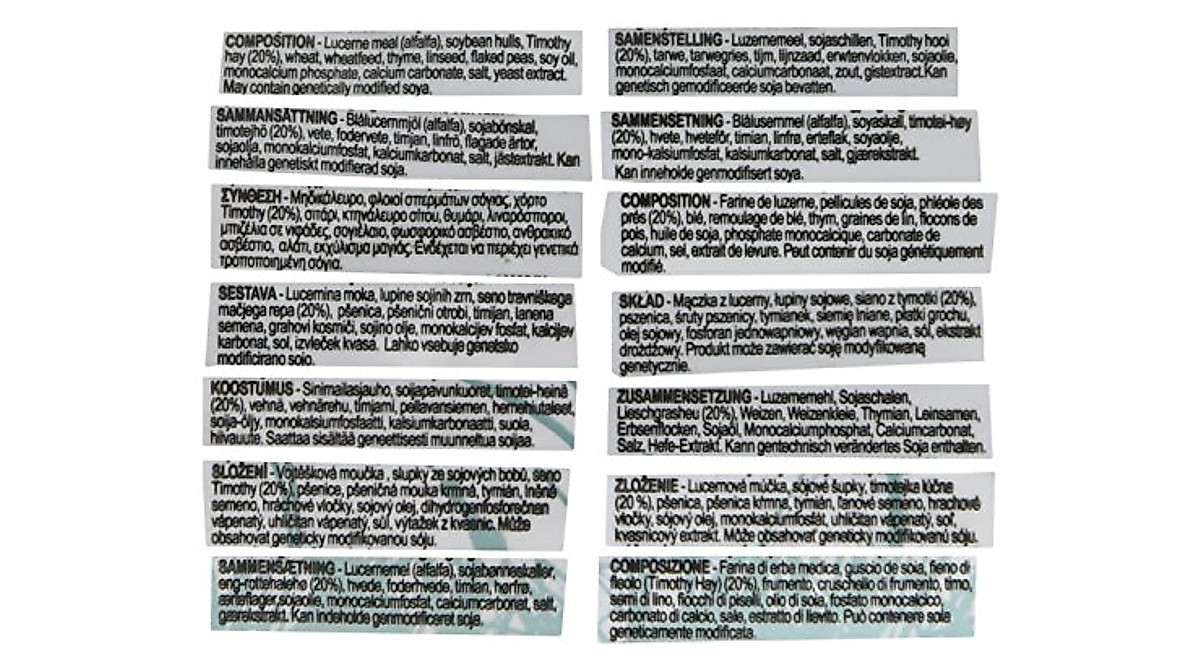 COMPOSITION - Lucerne meal (alfalfa), soybean hulls, Timothy
hay (20%), wheat, wheatfeed, thyme, linseed, flaked peas, soy oil,
monocalcium phosphate, calcium carbonate, salt, yeast extract.
May contain genetically modified soya.
SAMMANSÄTTNING - Blålucernmjöl (alfalfa), sojabönskal,
timotejhö (20%), vete, fodervete, timjan, linfrö, flagade ärtor,
sojaolja, monokalciumfosfat, kalciumkarbonat, salt, jästextrakt. Kan
innehålla genetiskt modifierad soja.
ΣΥΝΘΕΣΗ - Μηδικάλευρο, φλοιοί σπερμάτων σόγιας, χόρτο
Timothy (20%), σιτάρι, κτηνάλευρο σίτου, θυμάρι, λιναρόσποροι,
μπιζέλια σε νιφάδες, σογιέλαιο, φωσφορικό ασβέστιο, ανθρακικό
ασβέστιο, αλάτι, εκχύλισμα μαγιάς. Ενδέχεται να περιέχει γενετικά
τροποποιημένη σόγια.
SESTAVA - Lucernina moka, lupine sojinih zrn, seno travniškega
mačjega repa (20%), pšenica, pšenični otrobi, timijan, lanena
semena, grahovi kosmiči, sojino olje, monokalcijev fosfat, kalcijev
karbonat, sol, izvleček kvasa. Lahko vsebuje genetsko
modificirano sojo.
KOOSTUMUS - Sinimailasjauho, soijapavunkuoret, timotei-heinä
(20%), vehnä, vehnärehu, timjami, pellavansiemen, hernehiutaleet,
soija-öljy, monokalsiumfosfaatti, kalsiumkarbonaatti, suola,
hiivauute. Saattaa sisältää geneettisesti muunneltua soijaa.
SLOŽENÍ - Vojtěšková moučka , slupky ze sojových bobů, seno
Timothy (20%), pšenice, pšeničná mouka krmná, tymián, lněné
semeno, hrachové vločky, sojový olej, dihydrogenfosforečnan
vápenatý, uhličitan vápenatý, sůl, výtažek z kvasnic. Může
obsahovat geneticky modifikovanou sóju.
SAMMENSÆTNING - Lucernemel (alfalfa), sojabønneskaller,
eng-rottehalehø (20%), hvede, foderhvede, timian, hørfrø,
ærteflager,sojaolie, monocalciumfosfat, calciumcarbonat, salt,
gærekstrakt. Kan indeholde genmodificeret soja.
SAMENSTELLING - Luzernemeel, sojaschillen, Timothy hooi
(20%), tarwe, tarwegries, tijm, lijnzaad, erwtenvlokken, sojaolie,
monocalciumfosfaat, calciumcarbonaat, zout, gistextract.Kan
genetisch gemodificeerde soja bevatten.
SAMMENSETNING - Blålusernmel (alfalfa), soyaskall, timotei-høy
(20%), hvete, hvetefôr, timian, linfrø, erteflak, soyaolje,
mono-kalsiumfosfat, kalsiumkarbonat, salt, gjærekstrakt.
Kan inneholde genmodifisert soya.
COMPOSITION - Farine de luzerne, pellicules de soja, phléole des
prés (20%), blé, remoulage de blé, thym, graines de lin, flocons de
pois, huile de soja, phosphate monocalcique, carbonate de
calcium, sel, extrait de levure. Peut contenir du soja génétiquement
modifié.
SKŁAD - Mączka z lucerny, łupiny sojowe, siano z tymotki (20%),
pszenica, śruty pszenicy, tymianek, siemię lniane, płatki grochu,
olej sojowy, fosforan jednowapniowy, węglan wapnia, sól, ekstrakt
drożdżowy. Produkt może zawierać soję modyfikowaną
genetycznie.
ZUSAMMENSETZUNG - Luzernemehl, Sojaschalen,
Lieschgrasheu (20%), Weizen, Weizenkleie, Thymian, Leinsamen,
Erbsenflocken, Sojaöl, Monocalciumphosphat, Calciumcarbonat,
Salz, Hefe-Extrakt. Kann gentechnisch verändertes Soja enthalten.
ZLOŽENIE - Lucernová múčka, sójové šupky, timotejka lúčna
(20 %), pšenica, pšenica kŕmna, tymián, ľanové semeno, hrachové
vločky, sójový olej, monokalciumfosfát, uhličitan vápenatý, soľ,
kvasnicový extrakt. Môže obsahovať geneticky modifikovanú sóju.
COMPOSIZIONE - Farina di erba medica, guscio de soia, fieno di
fleolo (Timothy Hay) (20%), frumento, cruschello di frumento, timo,
semi di lino, fiocchi di piselli, olio di soia, fosfato monocalcico,
carbonato di calcio, sale, estratto di lievito. Può contenere soia
geneticamente modificata.